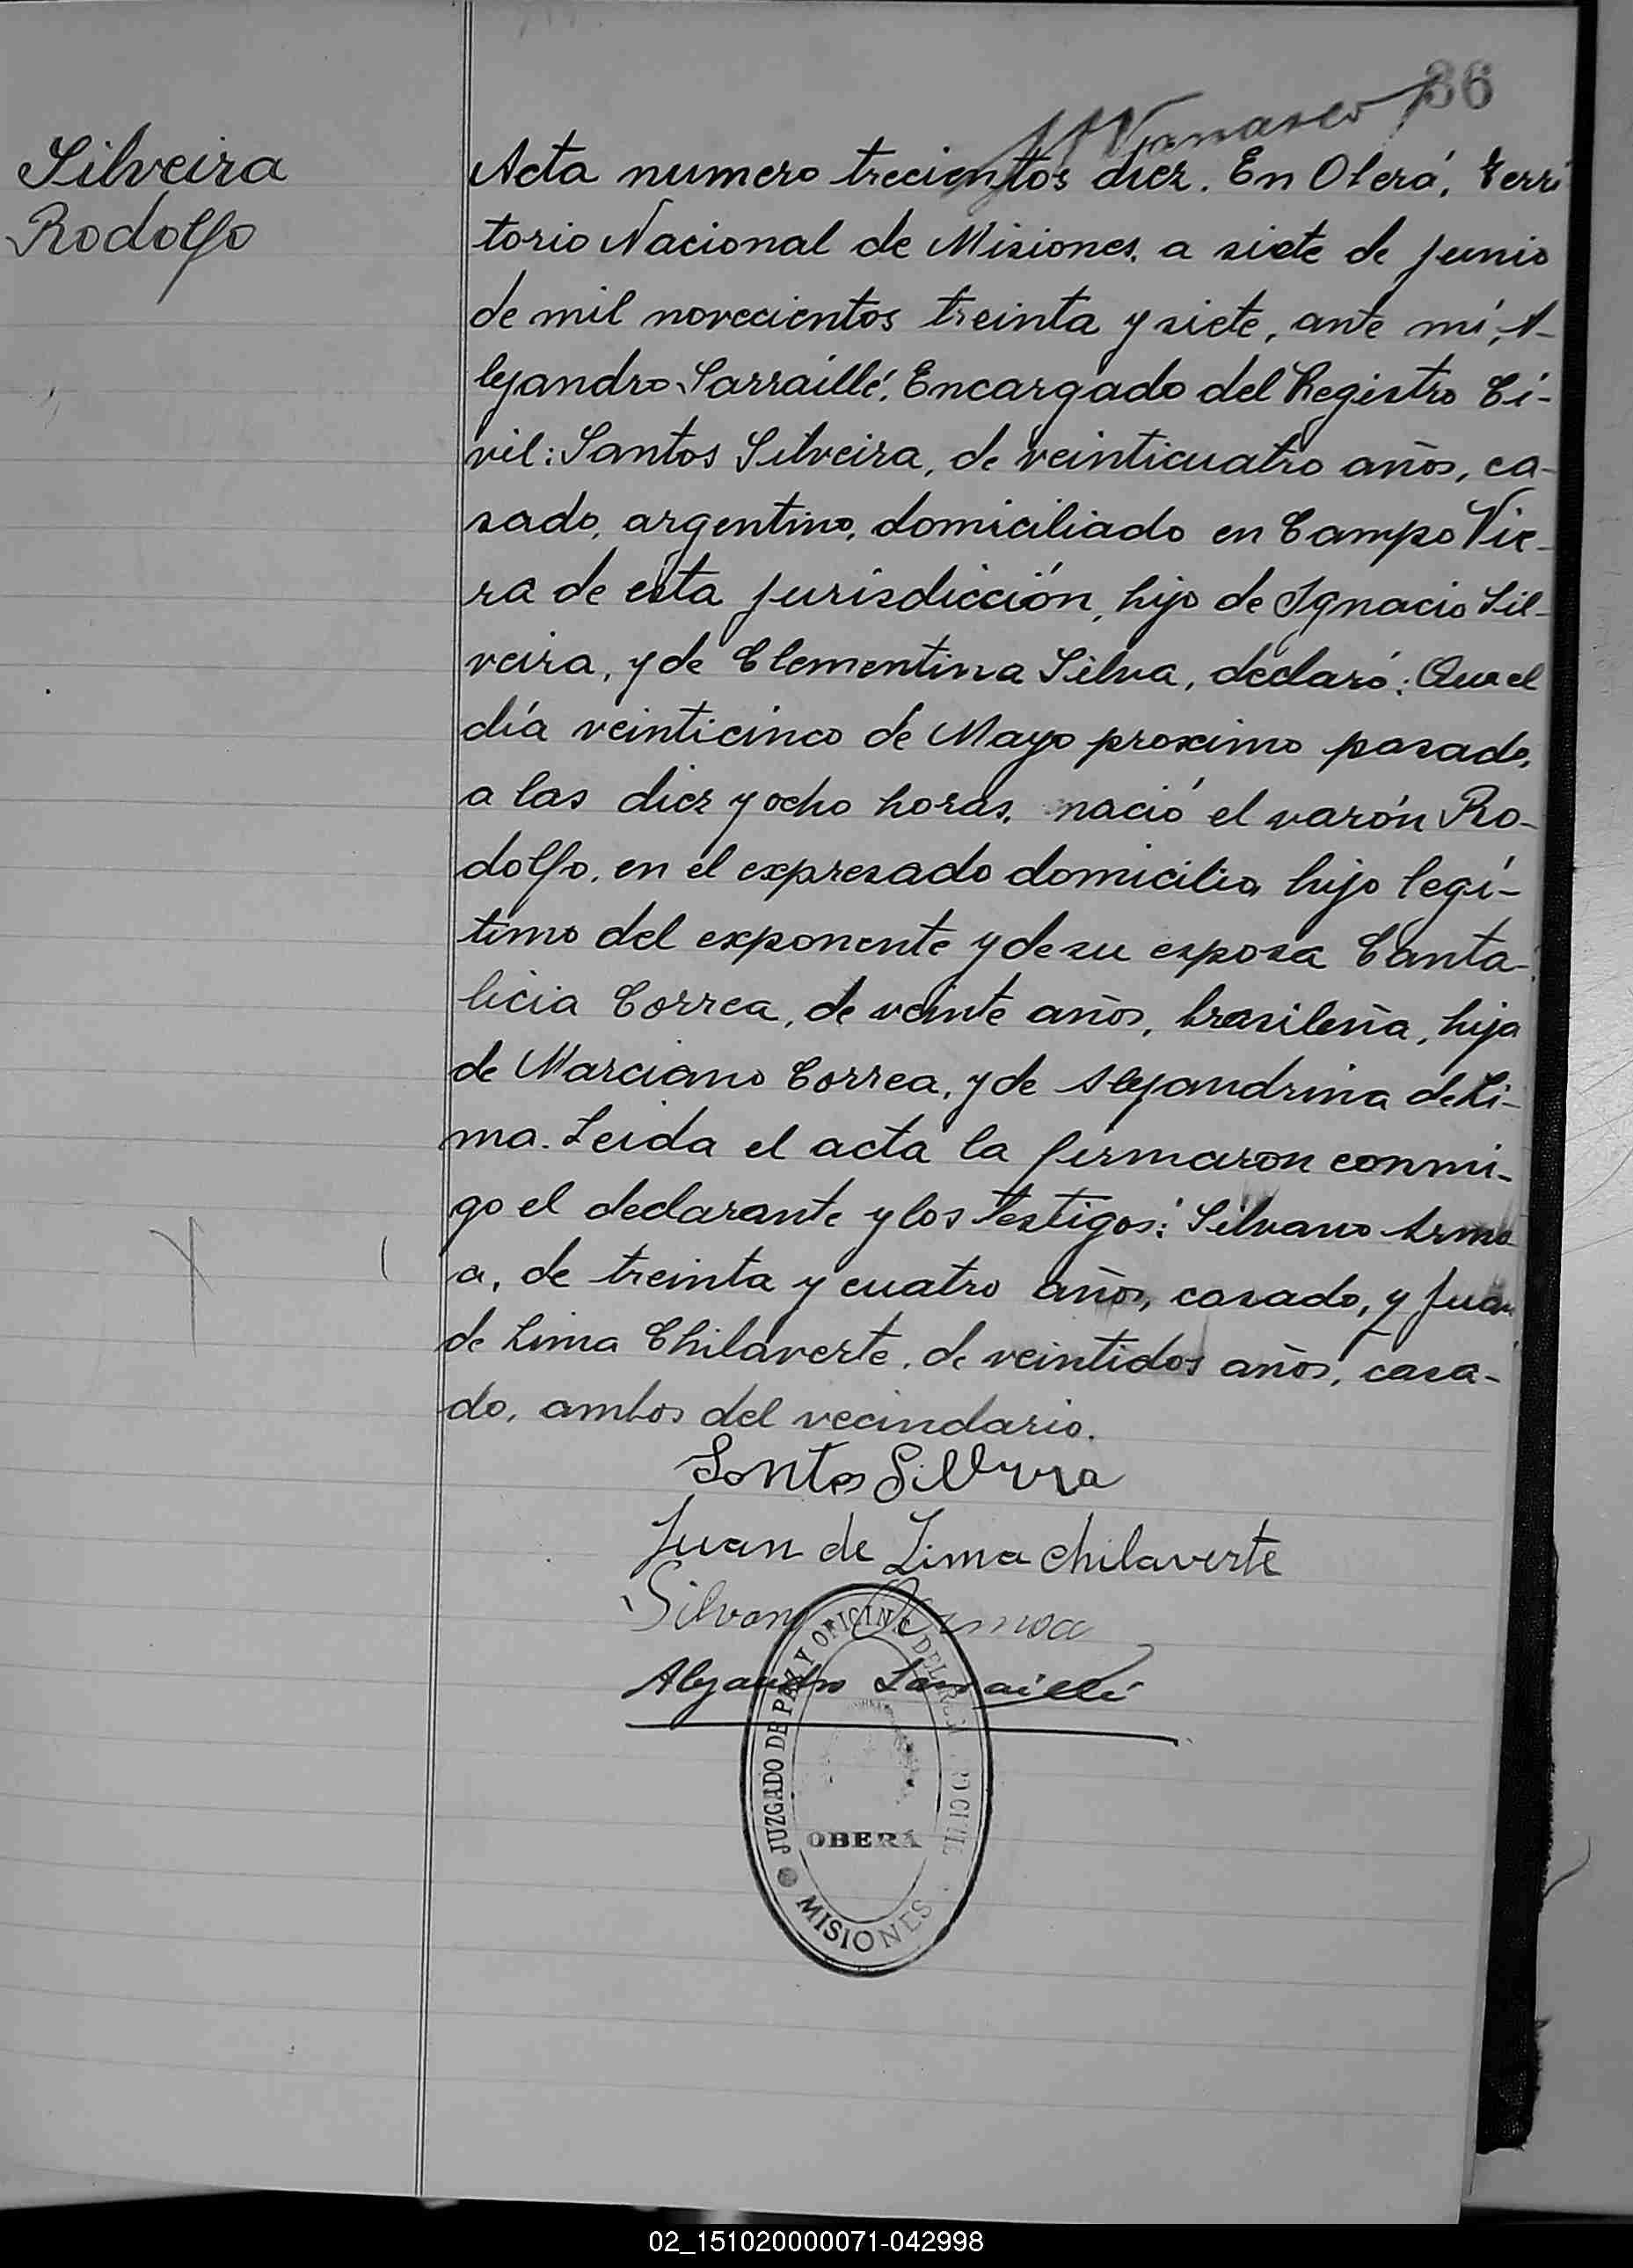 36
Silveira
Rodolfo
Acta numero trecientos diez. En Oberá, Terri
torio Nacional de Misiones, a siete de junio
de mil novecientos treinta y siete, ante mí, A-
lejandro Sarraillé, Encargado del Registro Ci-
vil: Santos Silveira, de veinticuatro años, ca-
sado, argentino, domiciliado en Campo Vie-
ra de esta jurisdicción, hijo de Ignacio Sil-
veira, y de Clementina Silva, declaró: Que el
día veinticinco de Mayo proximo pasado,
a las diez y ocho horas, nació el varón Ro-
dolfo, en el expresado domicilio, hijo legí-
timo del exponente y de su esposa Canta-
licia Correa, de veinte años, brasileña, hija
de Marciano Correa, y de Alejandrina de Li-
ma. Leida el acta la firmaron conmi-
go el declarante y los testigos: Silvano Armo
a, de treinta y cuatro años, casado, y Juan
de Lima Chilaverte, de veintidos años, casa-
do, ambos del vecindario.
Santos Silveira
Juan de Lima chilaverte
Silvano Armoa
Alejandro Sarraillé
JUZGADO DE PAZ Y OFICINA DEL REGISTRO CIVIL
OBERÁ
MISIONES
02_151020000071-042998